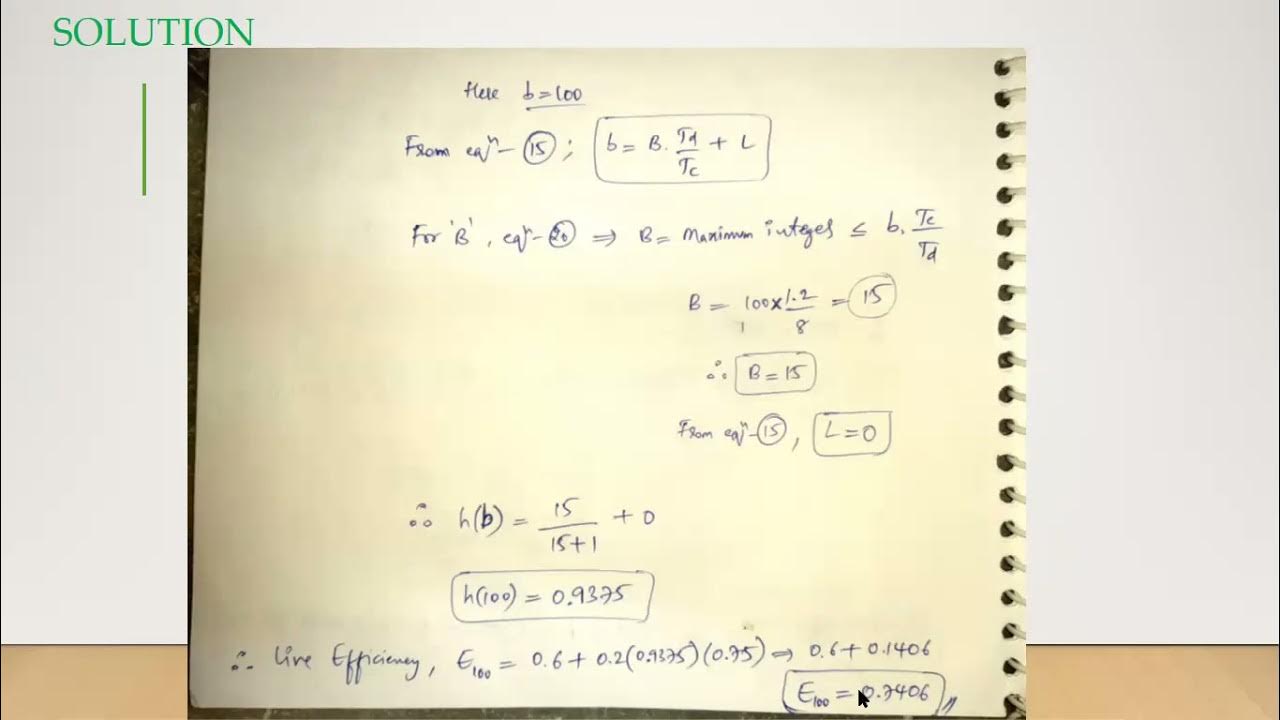 SOLUTION
Here b=100
From eqⁿ- 15 ; b = B. Td/Tc + L
For 'B', eqⁿ- 20 ⇒ B = Maximum integer ≤ b. Tc/Td
B = 100/1 × 1.2/8 = 15
∴ B = 15
From eqⁿ- 15 , L = 0
∴ h(b) = 15/15+1 + 0
h(100) = 0.9375
∴ Line Efficiency, E₁₀₀ = 0.6 + 0.2(0.9375)(0.75) ⇒ 0.6 + 0.1406
E₁₀₀ = 0.7406